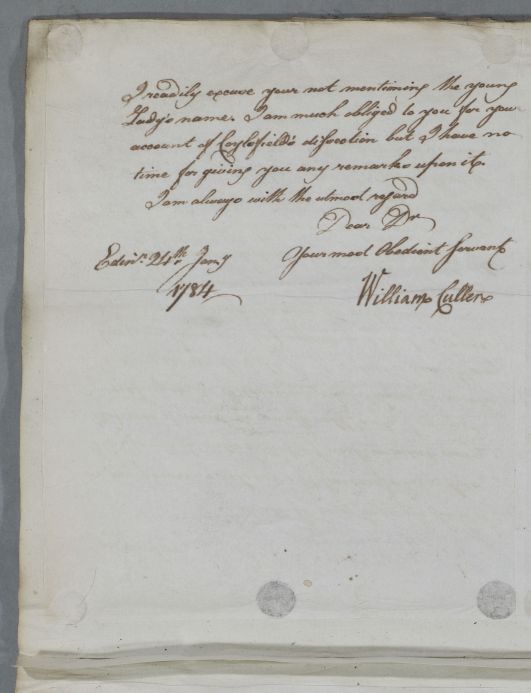 I readily excuse your not mentioning the young
Lady's name. I am much obliged to you for your
account of Coylsfield's dissection but I have no
time for giving you any remarks upon it.
I am always with the utmost regard
Dear Dr
Your most Obedient Servant
Edinr. 24th Jany
1784
William Cullen